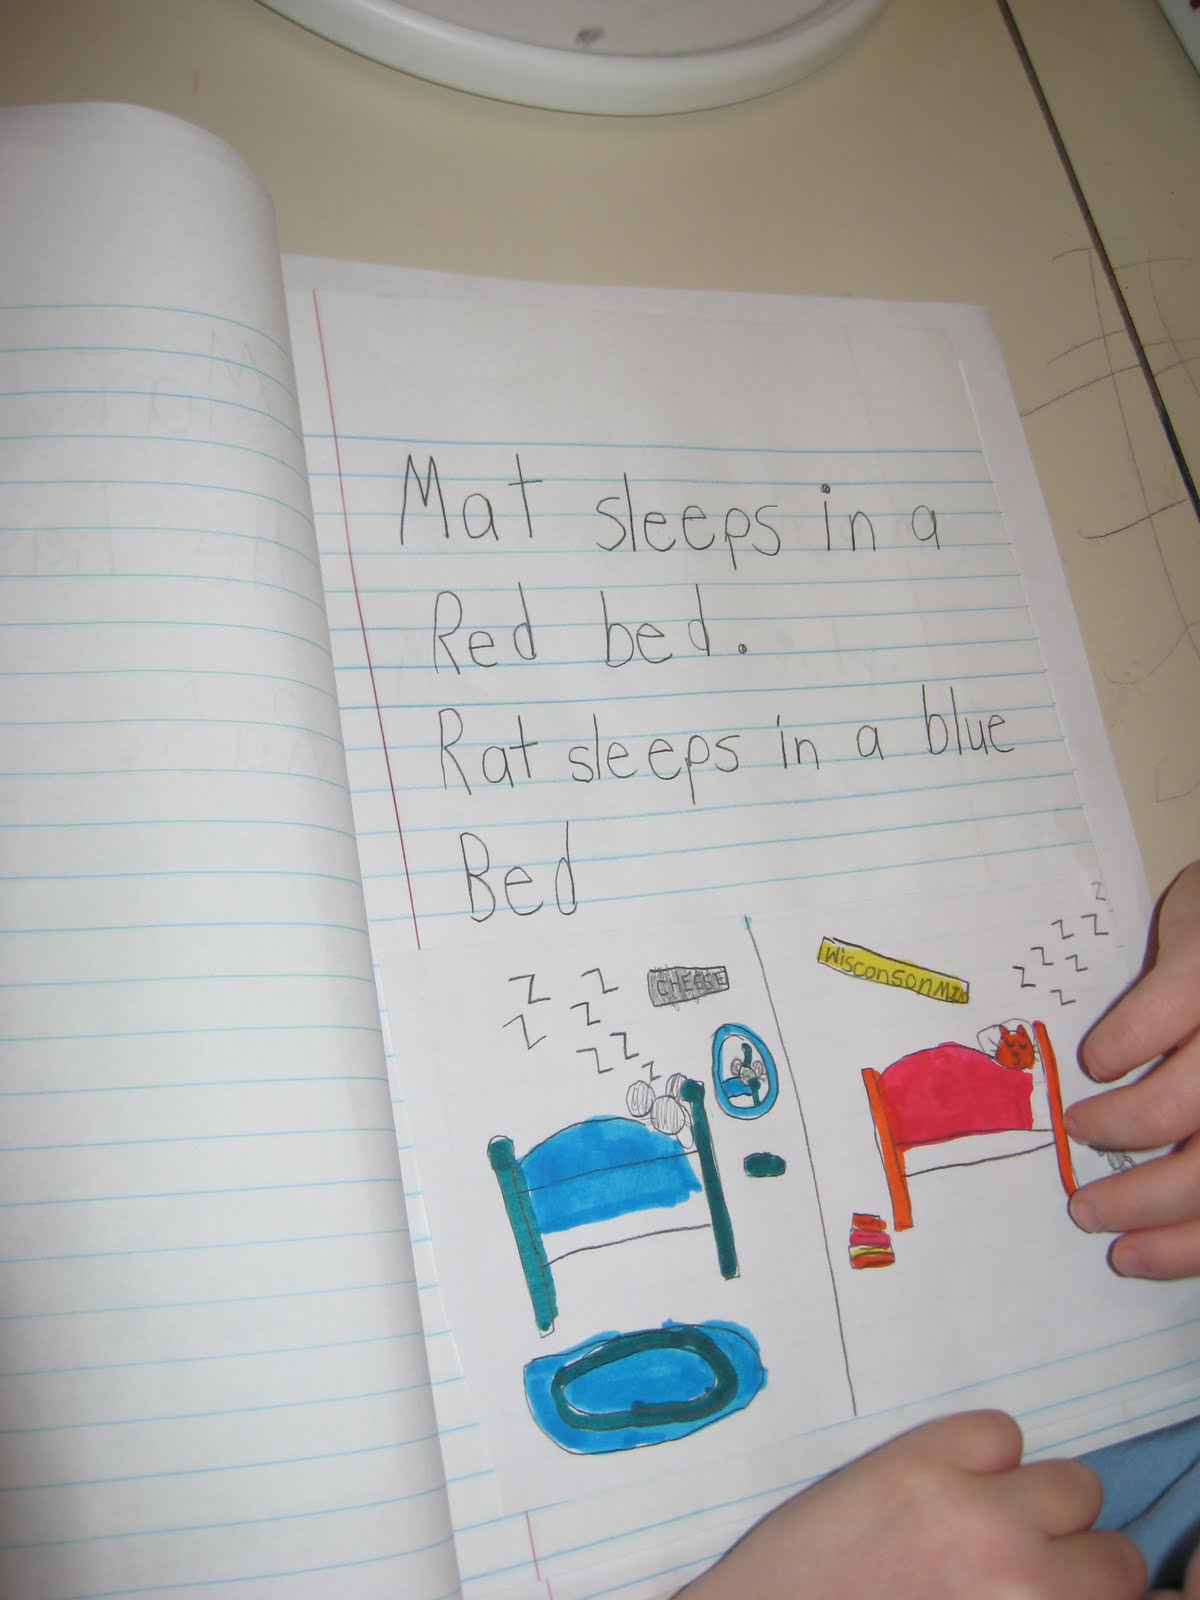 Mat sleeps in a
Red bed.
Rat sleeps in a blue
Bed
Z Z
Z Z
Z Z
Z
CHEESE
Wisconson
Z
Z Z
Z Z
Z Z
Z